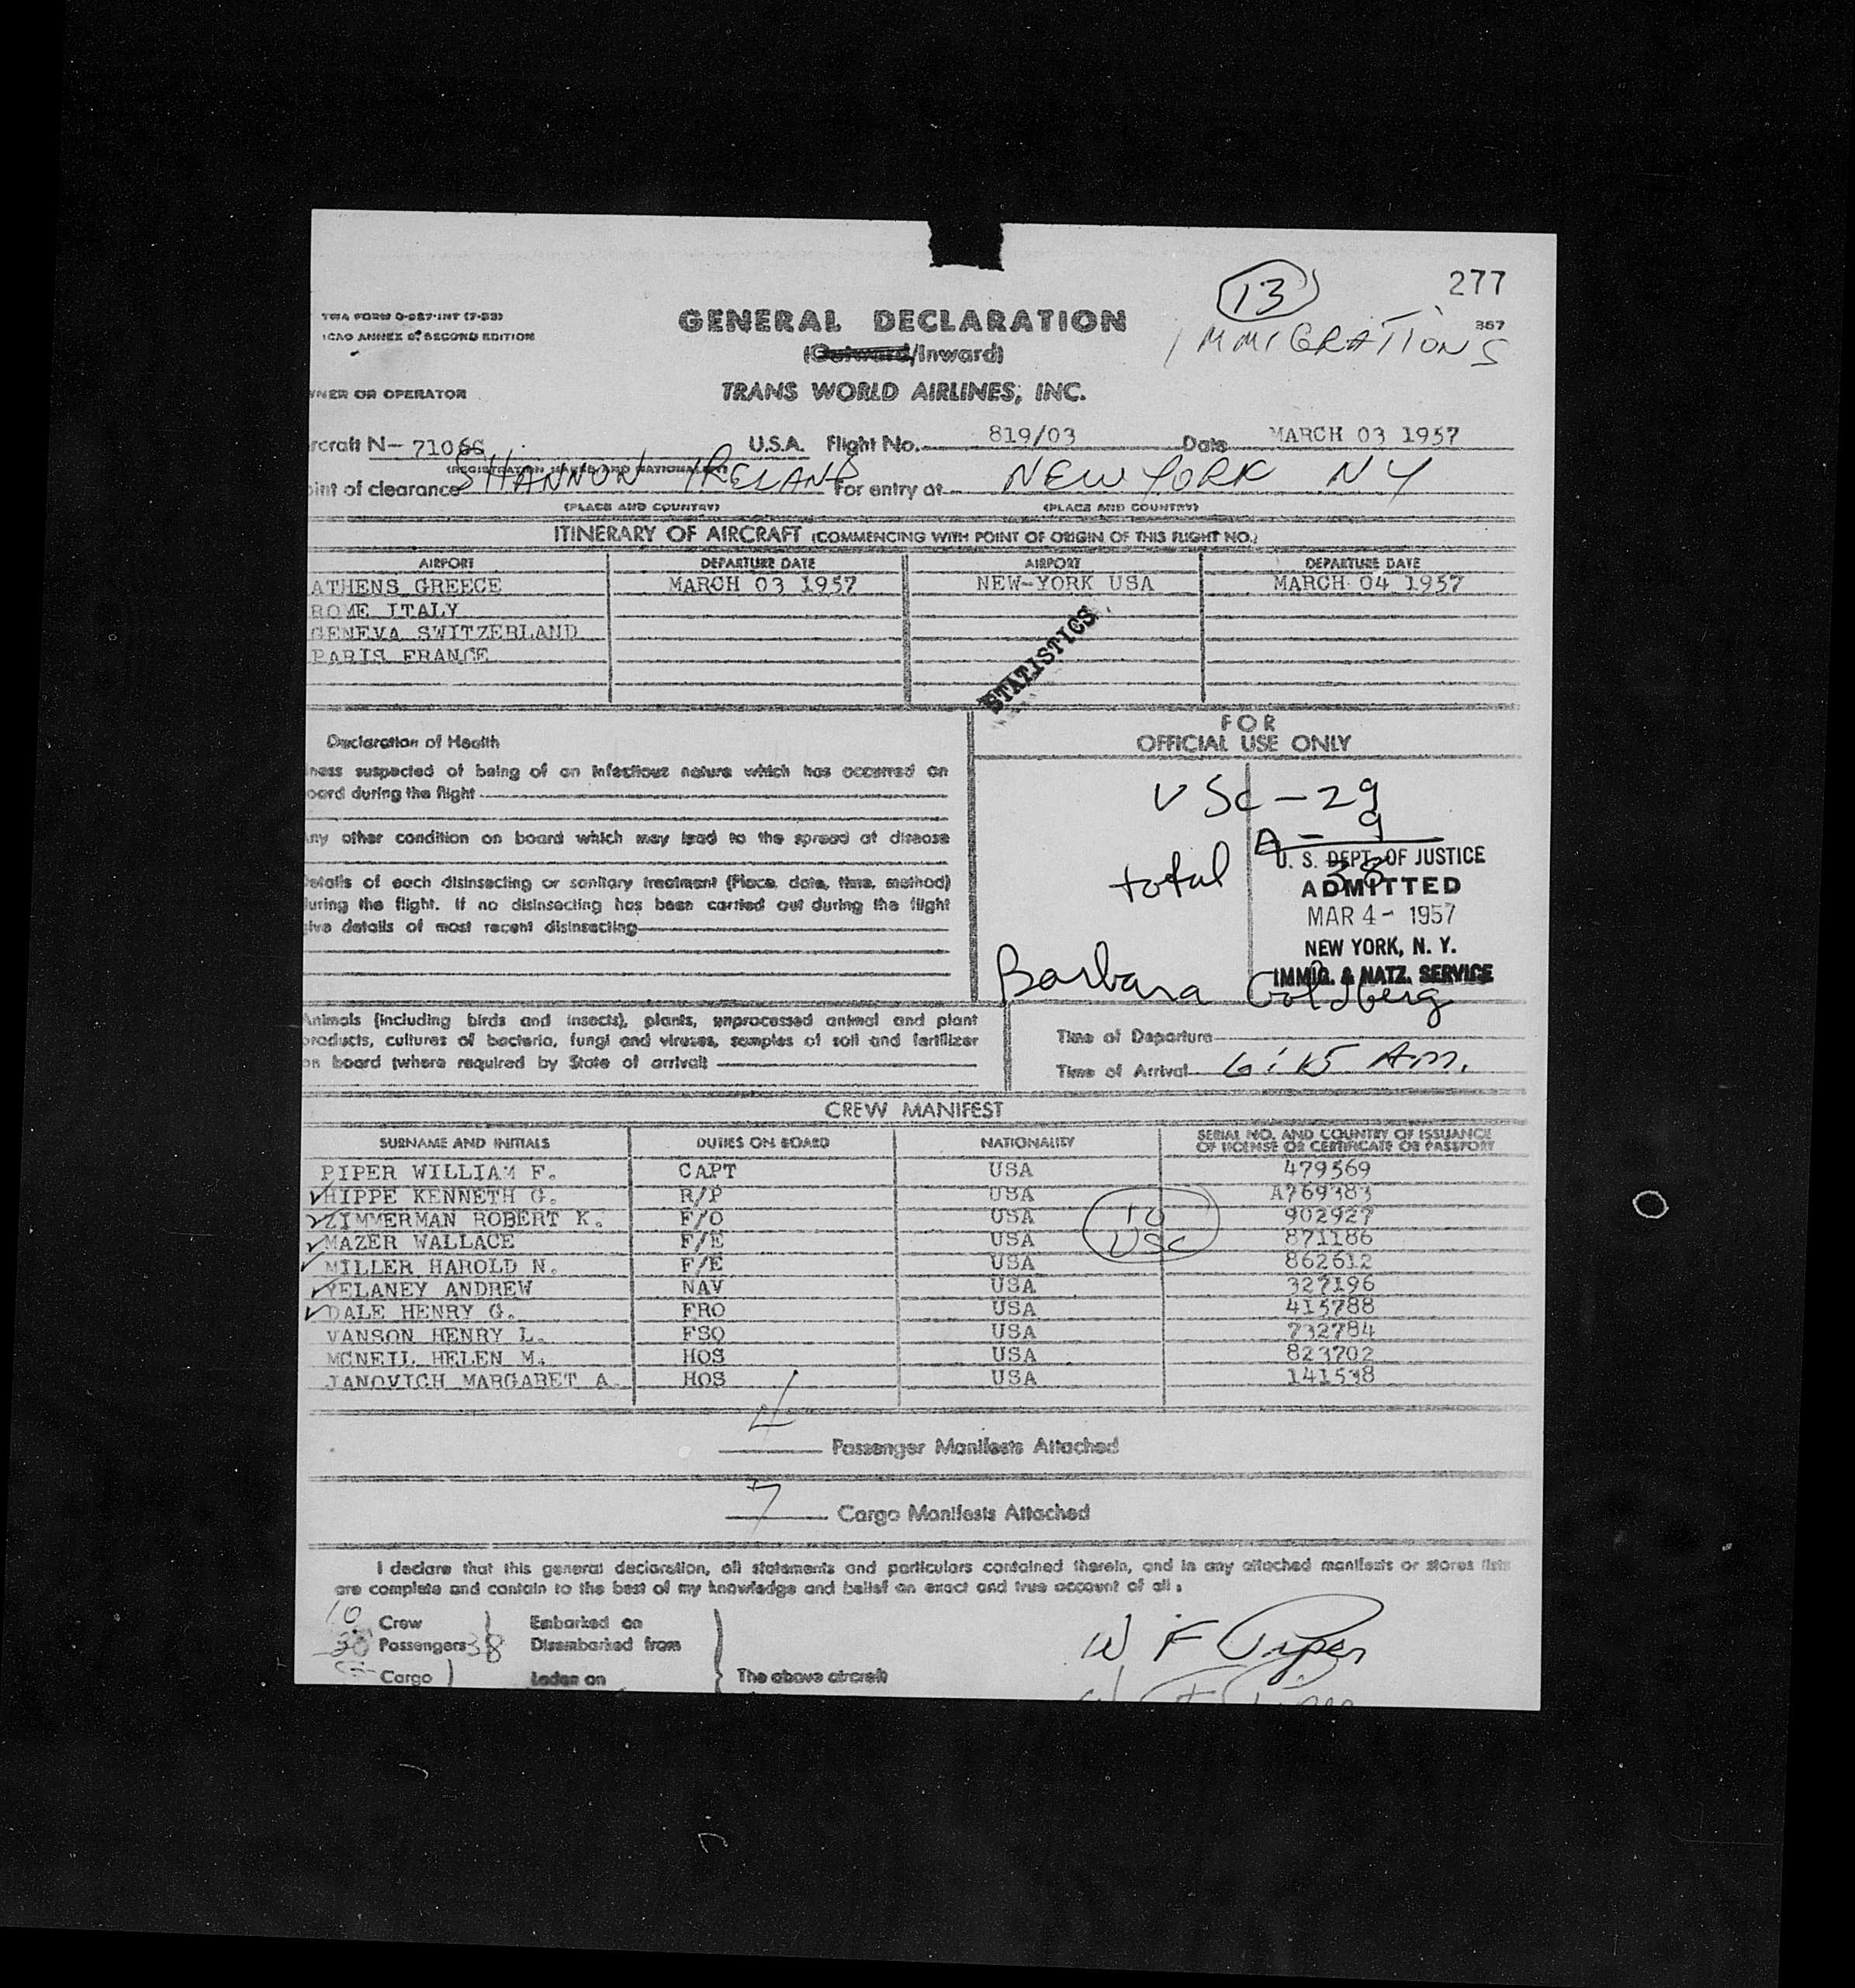 277
13
IMMIGRATIONS
TWA FORM O-087-INT (7-53)
ICAO ANNEX 9, SECOND EDITION
GENERAL DECLARATION
357
(Outward/Inward)
NER OR OPERATOR
TRANS WORLD AIRLINES, INC.
rcraft N- 7106 U.S.A. Flight No. 819/03 Date MARCH 03 1957
(REGISTRATION MARKS AND NATIONALITY)
oint of clearance SHANNON IRELAND For entry at NEW YORK NY
(PLACE AND COUNTRY) (PLACE AND COUNTRY)
ITINERARY OF AIRCRAFT (COMMENCING WITH POINT OF ORIGIN OF THIS FLIGHT NO.)
AIRPORT DEPARTURE DATE AIRPORT DEPARTURE DATE
ATHENS GREECE MARCH 03 1957 NEW-YORK USA MARCH 04 1957
ROME ITALY
GENEVA SWITZERLAND
PARIS FRANCE
STATISTICS
FOR
OFFICIAL USE ONLY
Declaration of Health
ness suspected of being of an infectious nature which has occurred on
oard during the flight
ny other condition on board which may lead to the spread of disease
etails of each disinsecting or sanitary treatment (Place, date, time, method)
uring the flight. If no disinsecting has been carried out during the flight
ive details of most recent disinsecting
USC - 29
A - 9
total 38
U. S. DEPT. OF JUSTICE
ADMITTED
MAR 4 - 1957
NEW YORK, N. Y.
IMMIG. & NATZ. SERVICE
Barbara Goldberg
Animals (including birds and insects), plants, unprocessed animal and plant
products, cultures of bacteria, fungi and viruses, samples of soil and fertilizer
on board (where required by State of arrival)
Time of Departure
Time of Arrival AM.
CREW MANIFEST
SURNAME AND INITIALS DUTIES ON BOARD NATIONALITY SERIAL NO. AND COUNTRY OF ISSUANCE
OF LICENSE OR CERTIFICATE OR PASSPORT
PIPER WILLIAM F. CAPT USA 479569
HIPPE KENNETH G. R/P USA A769383
ZIMMERMAN ROBERT K. F/O USA 902927
MAZER WALLACE F/E USA 871186
MILLER HAROLD N. F/E USA 862612
YELANEY ANDREW NAV USA 327196
DALE HENRY G. FRO USA 415788
VANSON HENRY L. FSO USA 732784
MCNEIL HELEN M. HOS USA 823702
JANOVICH MARGARET A. HOS USA 141538
10
USC
4 Passenger Manifests Attached
7 Cargo Manifests Attached
I declare that this general declaration, all statements and particulars contained therein, and in any attached manifests or stores lists
are complete and contain to the best of my knowledge and belief an exact and true account of all
10 Crew Embarked on
Passengers 38 Disembarked from
Cargo Laden on The above aircraft
W F Piper